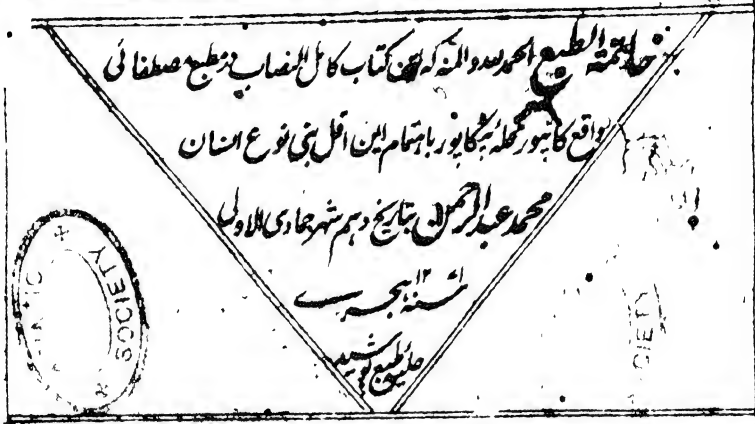 خاتمة الطبع الحمد لله والمنه که این کتاب کامل النصاب در مطبع مصطفائی
واقع کانپور محله پٹکاپور باهتمام این اقل بنی نوع انسان
محمد عبد الرحمن بتاریخ دهم شهر جمادی الاولی
سنه ۱۲ هجری
طبع پوشید
SOCIETY
CIETY